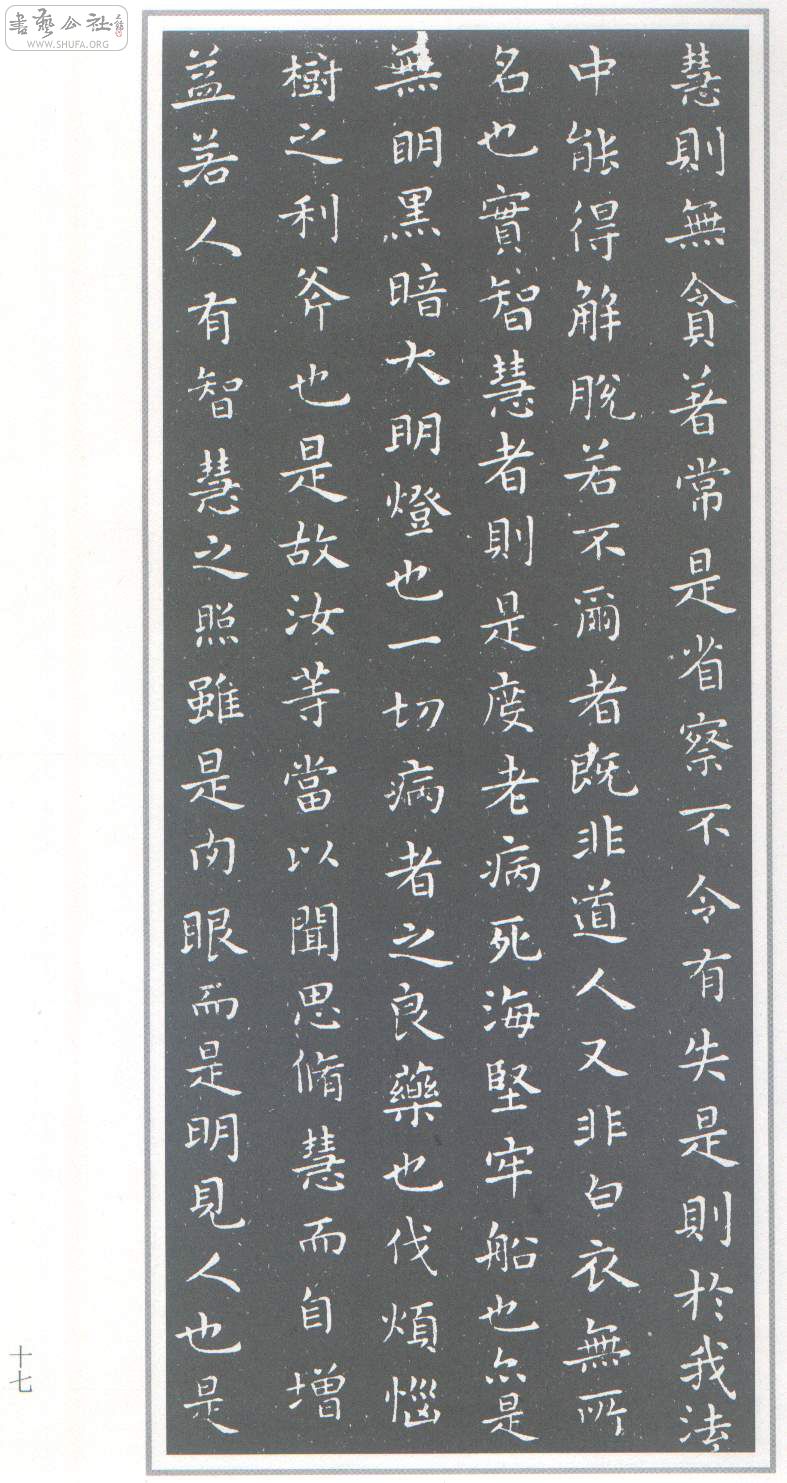 書藝公社
WWW.SHUFA.ORG
慧則無貪著常是省察不令有失是則於我法
中能得解脫若不爾者既非道人又非白衣無所
名也實智慧者則是度老病死海堅牢船也亦是
無明黑暗大明燈也一切病者之良藥也伐煩惱
樹之利斧也是故汝等當以聞思脩慧而自增
益若人有智慧之照雖是肉眼而是明見人也是
十七